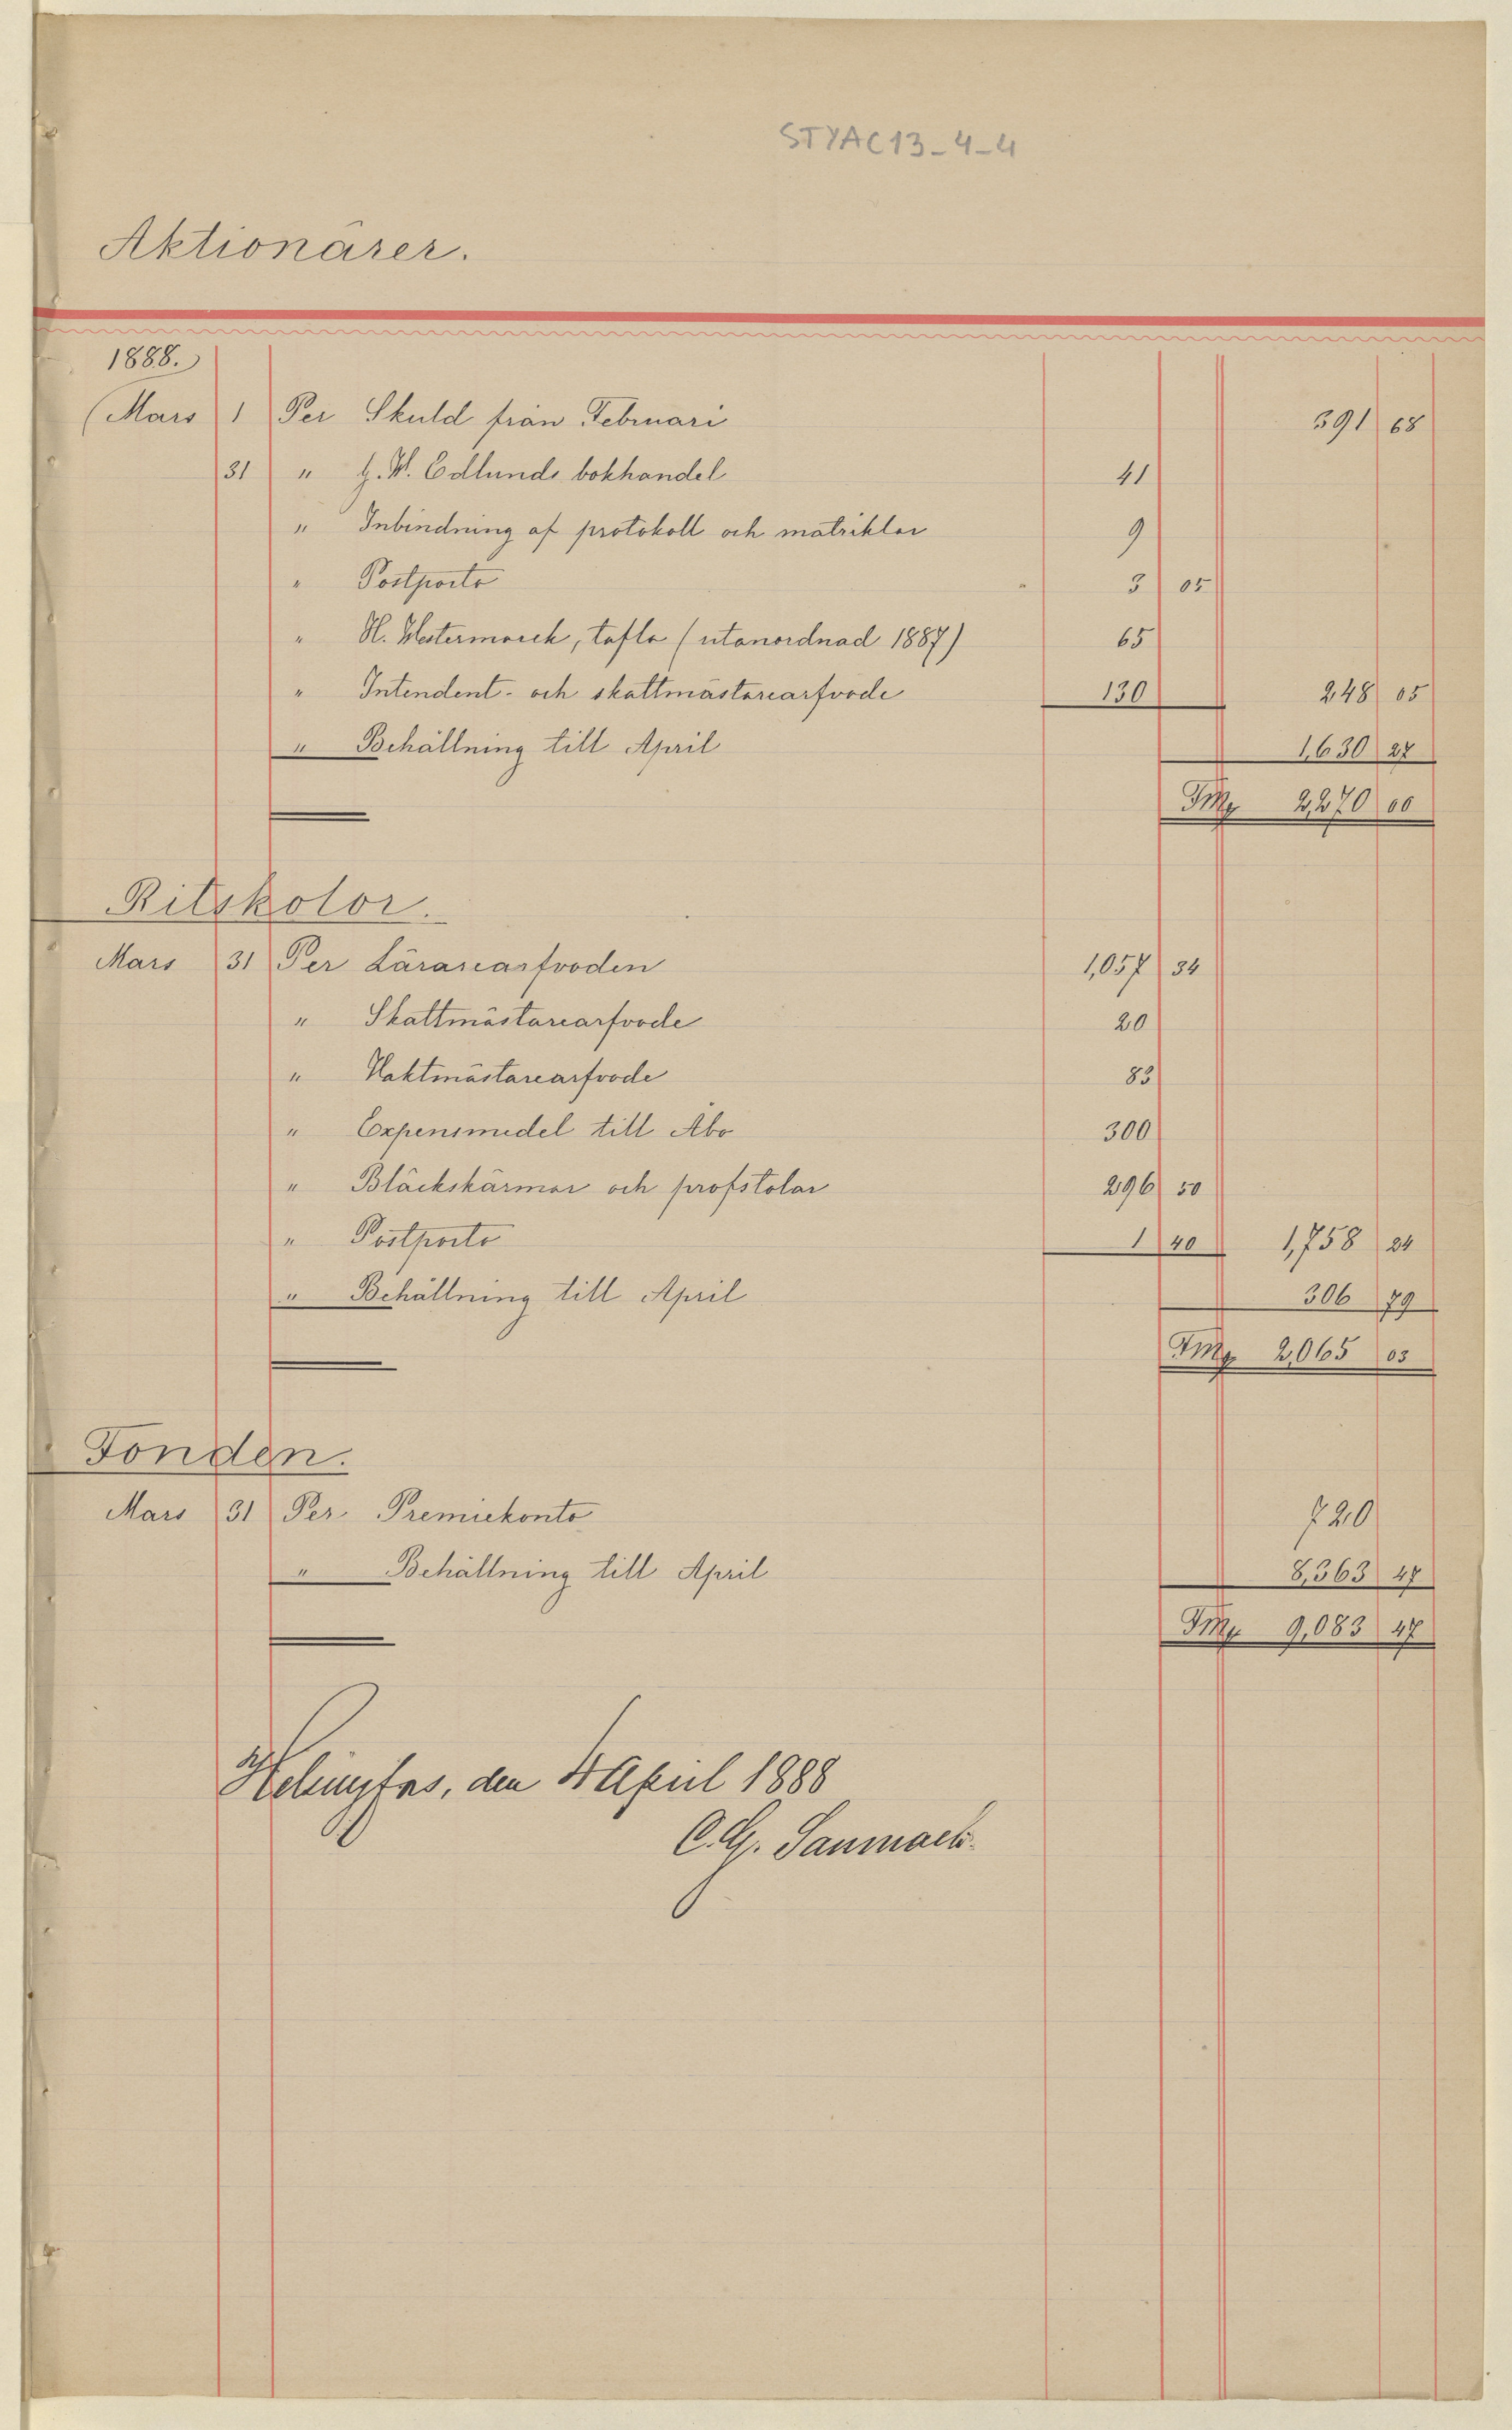 STYAC13-4-4
Aktionärer.
1888.
Mars 1 Per Skuld från Februari 391 68
31 " G. W. Edlunds bokhandel 41
" Inbindning af protokoll och matriklar 9
" Postporto 3 05
" H. Westermarck, tafla (utanordnad 1887) 65
" Intendent- och skattmästarearfvode 130 248 05
" Behållning till April 1,630 27
Fmk 2,270 00
Ritskolor.
Mars 31 Per Lärarearfvoden 1,057 34
" Skattmästarearfvode 20
" Vaktmästarearfvode 83
" Expensmedel till Åbo 300
" Bläckskärmar och profstolar 296 50
" Postporto 1 40 1,758 24
" Behållning till April 306 79
Fmk 2,065 03
Fonden.
Mars 31 Per Premiekonto 720
" Behållning till April 8,363 47
Fmk 9,083 47
Helsingfors, den April 1888
C. G. Sanmark